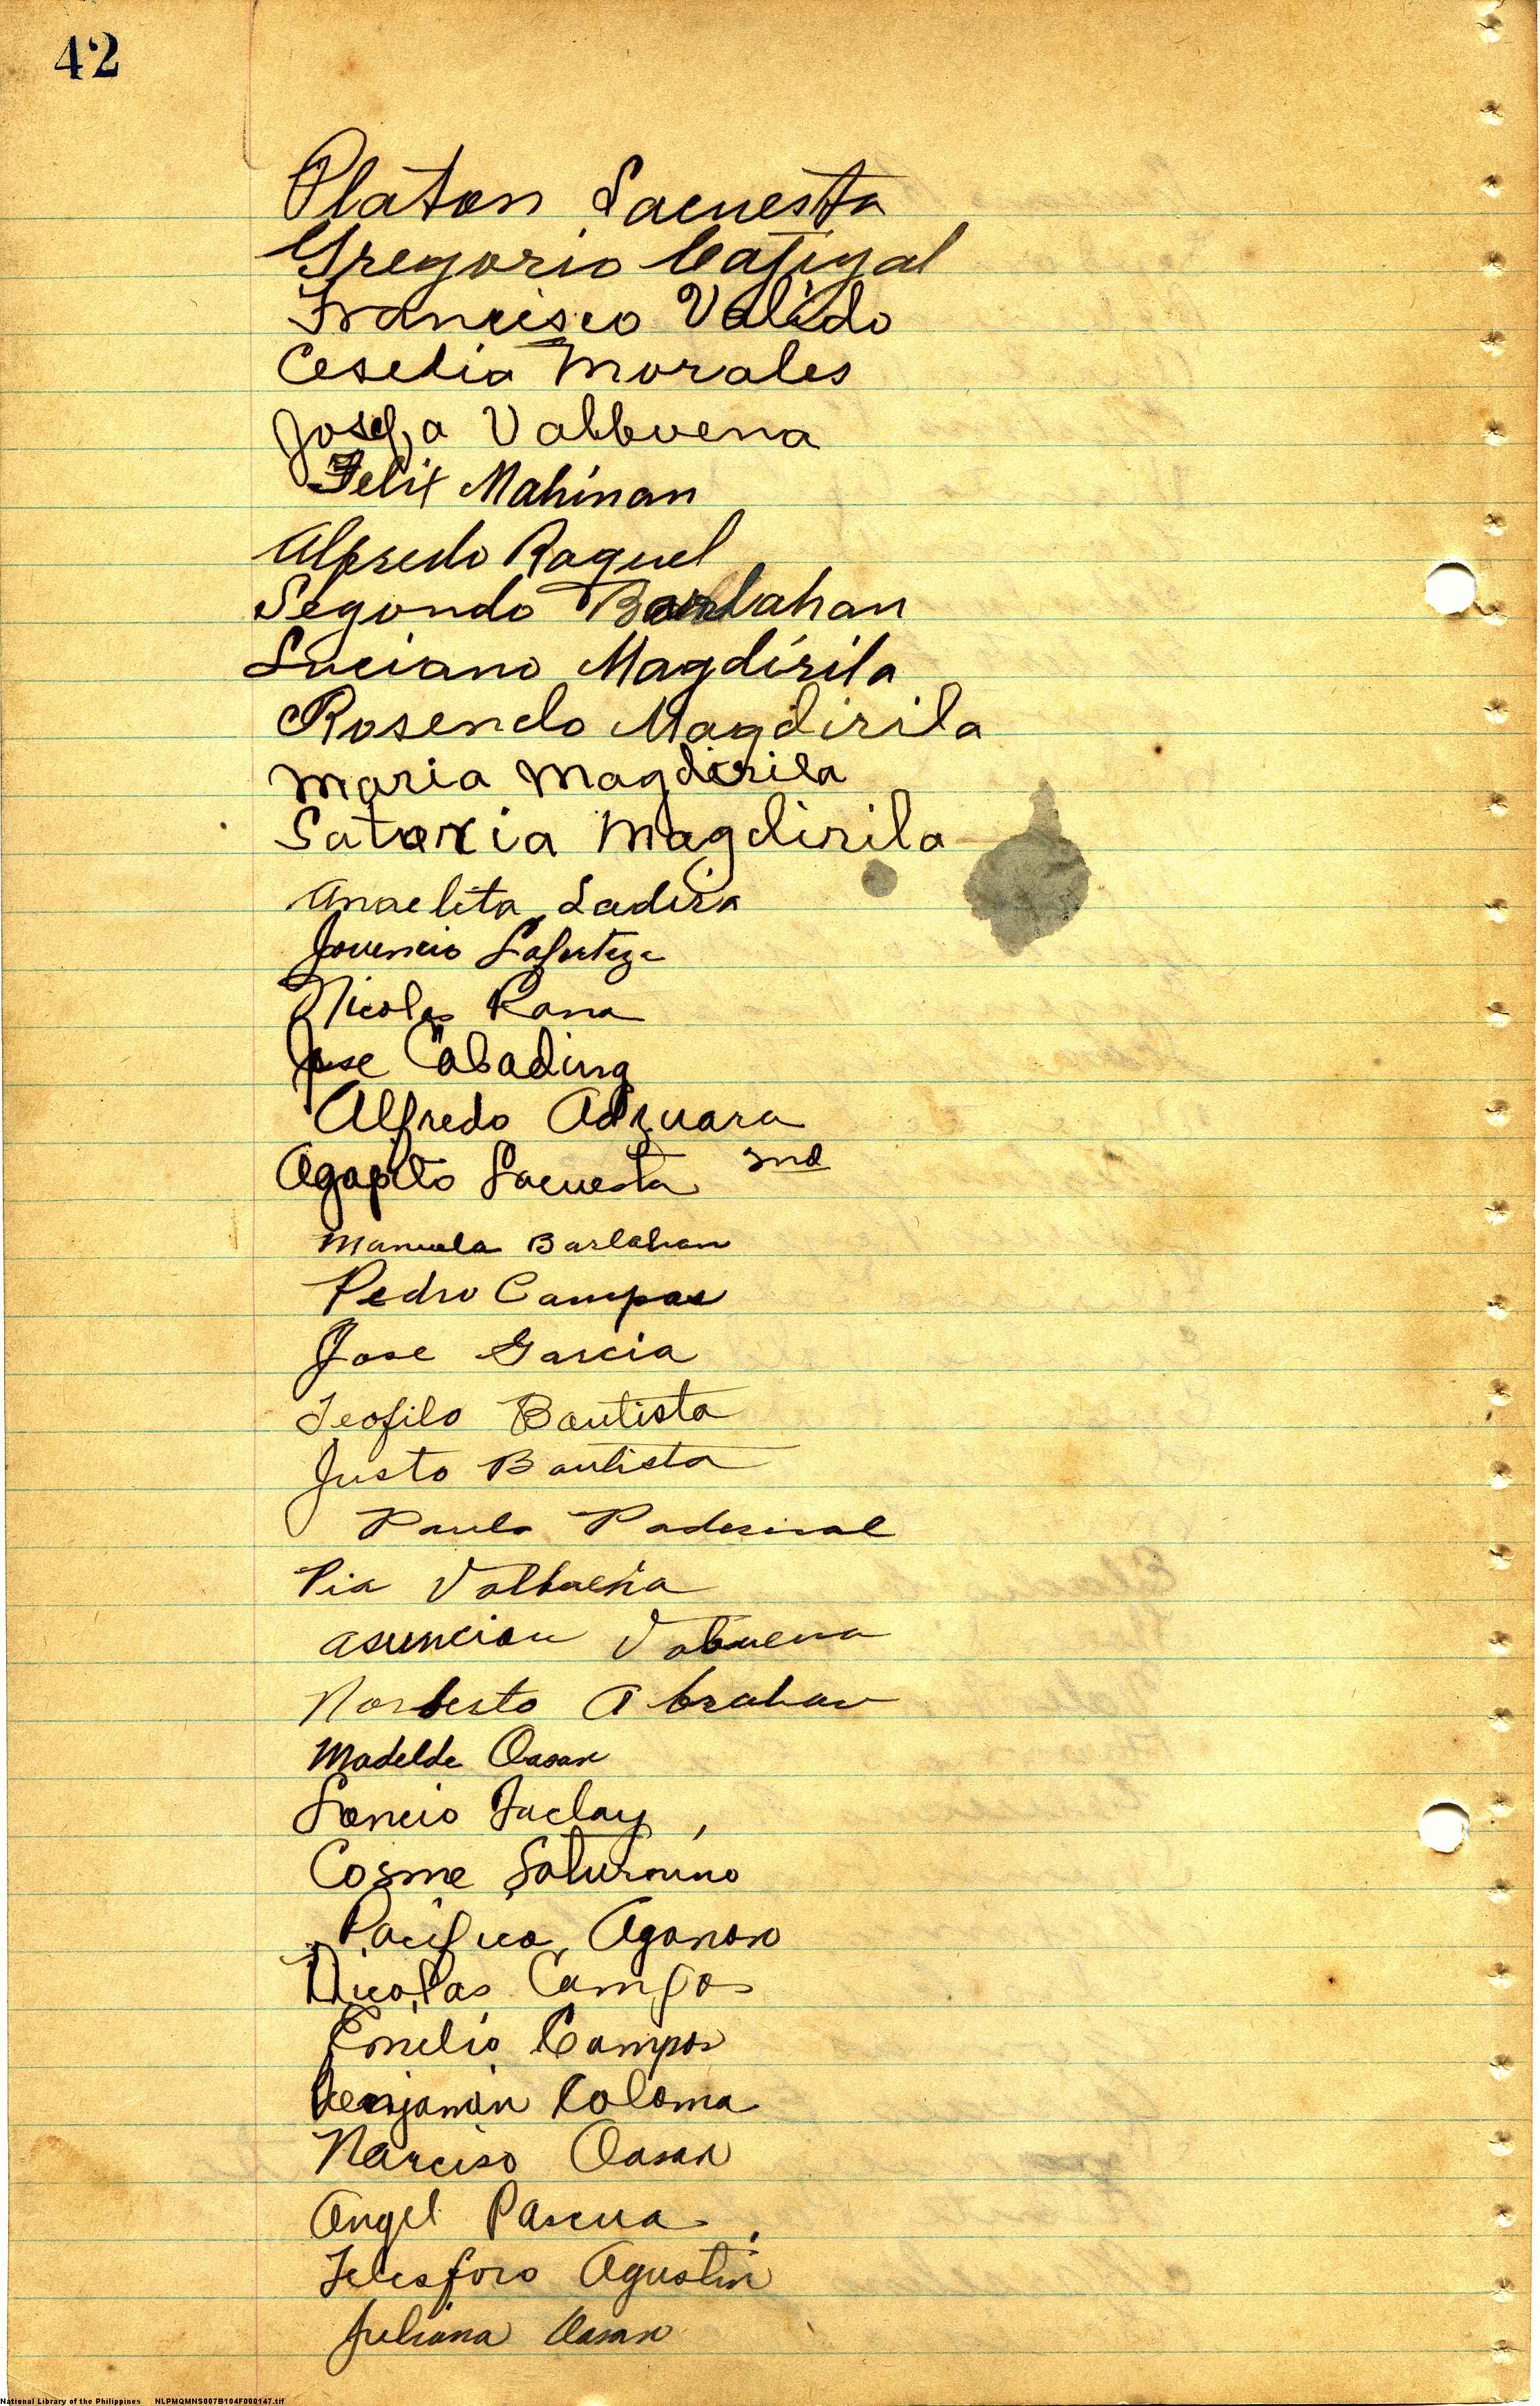 42
Platon Lacuesta
Gregorio Catigal
Francisco Valido
Ceselia Morales
Josefa Valbuena
Felix Mahinan
Alfredo Raquel
Segondo Barlahan
Luciano Magdirila
Rosendo Magdirila
Maria Magdirila
Magdirila
Anaclita Ladera
Jovencio
Nicolas Rana
Jose Cabading
Alfredo Adzuara
Agapito Lacuesta 2nd
Manuela Barlahan
Pedro Campos
Jose Garcia
Teofilo Bautista
Justo Bautista
Paulo
Pia Valbuena
Asuncion Vabuena
Norberto Abraham
Madelde Oasan
Cosme Saturnino
Pacifico Aganon
Nicolas Campos
Emelio Campos
Benjamin Coloma
Narciso Oasan
Angel Pascua
Telesforo Agustin
Juliana Oasan
National Library of the Philippines NLPMQMNS007B104F000147.tif